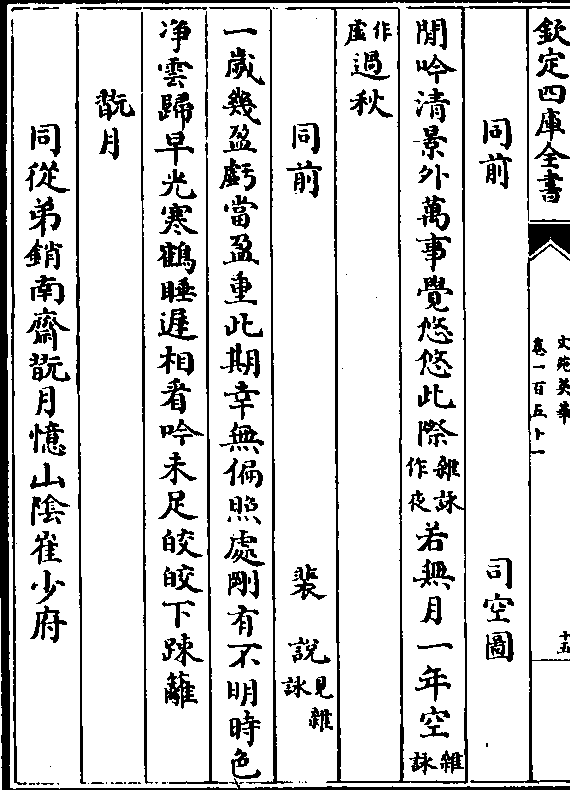 欽定四庫全書
文苑英華
卷一百五十一
十五
同前 司空圖
閒吟清景外萬事覺悠悠此際雜詠作夜若無月一年空雜詠
作虛過秋
同前 裴說見雜詠
一歲幾盈虧當盈重此期幸無偏照處剛有不明時色
净雲歸早光寒鶴睡遲相看吟未足皎皎下踈籬
翫月
同從弟銷南齋翫月憶山隂崔少府